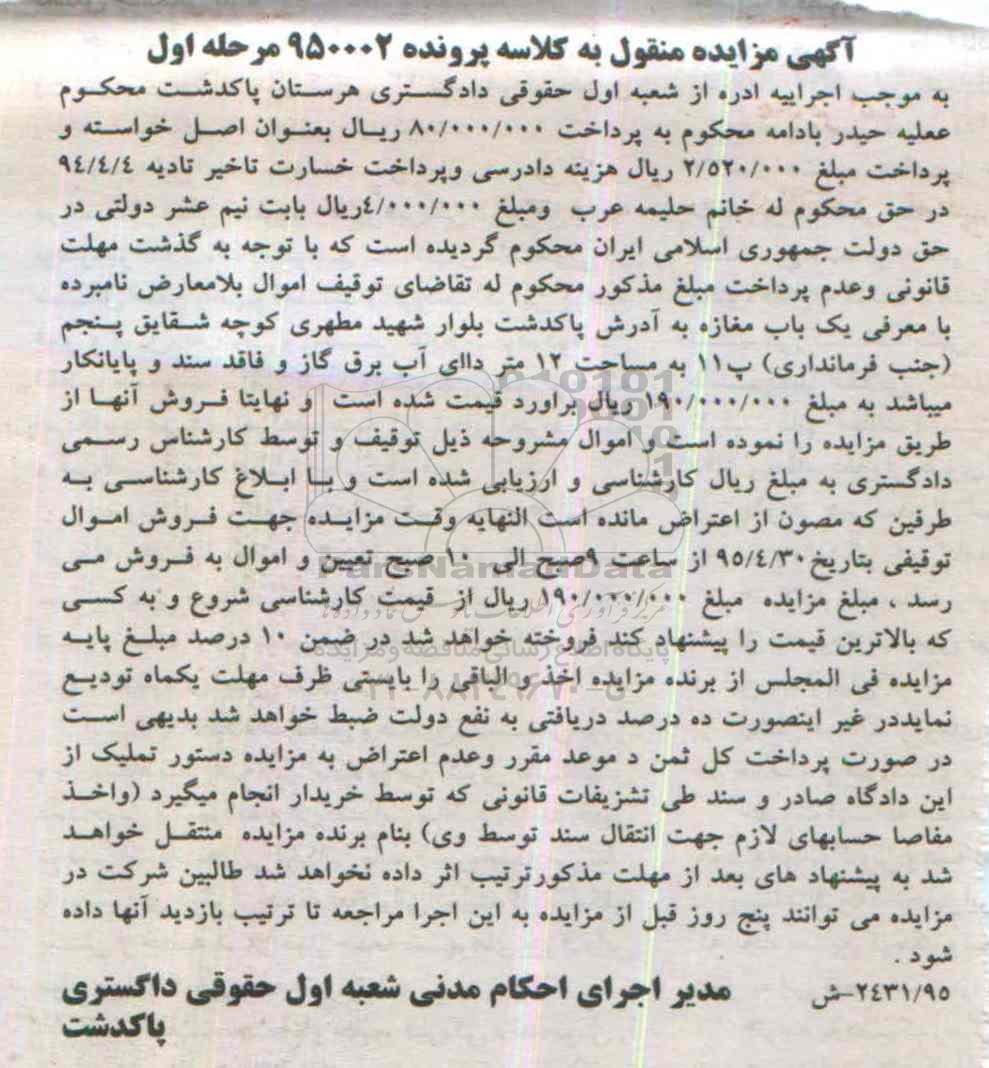 آگهی مزایده منقول به کلاسه پرونده ۹۵۰۰۰۲ مرحله اول
به موجب اجراییه ادره از شعبه اول حقوقی دادگستری هرستان پاکدشت محکوم
ععلیه حیدر بادامه محکوم به پرداخت ۸۰/۰۰۰/۰۰۰ ریال بعنوان اصل خواسته و
پرداخت مبلغ ۲/۵۲۰/۰۰۰ ریال هزینه دادرسی وپرداخت خسارت تاخیر تادیه ۹۴/۴/۴
در حق محکوم له خانم حلیمه عرب ومبلغ ۴/۰۰۰/۰۰۰ریال بابت نیم عشر دولتی در
حق دولت جمهوری اسلامی ایران محکوم گردیده است که با توجه به گذشت مهلت
قانونی وعدم پرداخت مبلغ مذکور محکوم له تقاضای توقیف اموال بلامعارض نامبرده
با معرفی یک باب مغازه به آدرش پاکدشت بلوار شهید مطهری کوچه شقایق پنجم
(جنب فرمانداری) پ۱۱ به مساحت ۱۲ متر داای آب برق گاز و فاقد سند و پایانکار
میباشد به مبلغ ۱۹۰/۰۰۰/۰۰۰ ریال براورد قیمت شده است و نهایتا فروش آنها از
طریق مزایده را نموده است و اموال مشروحه ذیل توقیف و توسط کارشناس رسمی
دادگستری به مبلغ ریال کارشناسی و ارزیابی شده است و با ابلاغ کارشناسی به
طرفین که مصون از اعتراض مانده است النهایه وقت مزایده جهت فروش اموال
توقیفی بتاریخ۹۵/۴/۳۰ از ساعت ۹صبح الی ۱۰ صبح تعیین و اموال به فروش می
رسد ، مبلغ مزایده مبلغ ۱۹۰/۰۰۰/۰۰۰ ریال از قیمت کارشناسی شروع و به کسی
که بالاترین قیمت را پیشنهاد کند فروخته خواهد شد در ضمن ۱۰ درصد مبلغ پایه
مزایده فی المجلس از برنده مزایده اخذ و الباقی را بایستی ظرف مهلت یکماه تودیع
نمایددر غیر اینصورت ده درصد دریافتی به نفع دولت ضبط خواهد شد بدیهی است
در صورت پرداخت کل ثمن د موعد مقرر وعدم اعتراض به مزایده دستور تملیک از
این دادگاه صادر و سند طی تشزیفات قانونی که توسط خریدار انجام میگیرد (واخذ
مفاصا حسابهای لازم جهت انتقال سند توسط وی) بنام برنده مزایده منتقل خواهد
شد به پیشنهاد های بعد از مهلت مذکورترتیب اثر داده نخواهد شد طالبین شرکت در
مزایده می توانند پنج روز قبل از مزایده به این اجرا مراجعه تا ترتیب بازدید آنها داده
شود .
۲۴۳۱/۹۵-ش مدیر اجرای احکام مدنی شعبه اول حقوقی داگستری
پاکدشت
ParsNamadData
پایگاه اطلاع رسانی مناقصه و مزایده